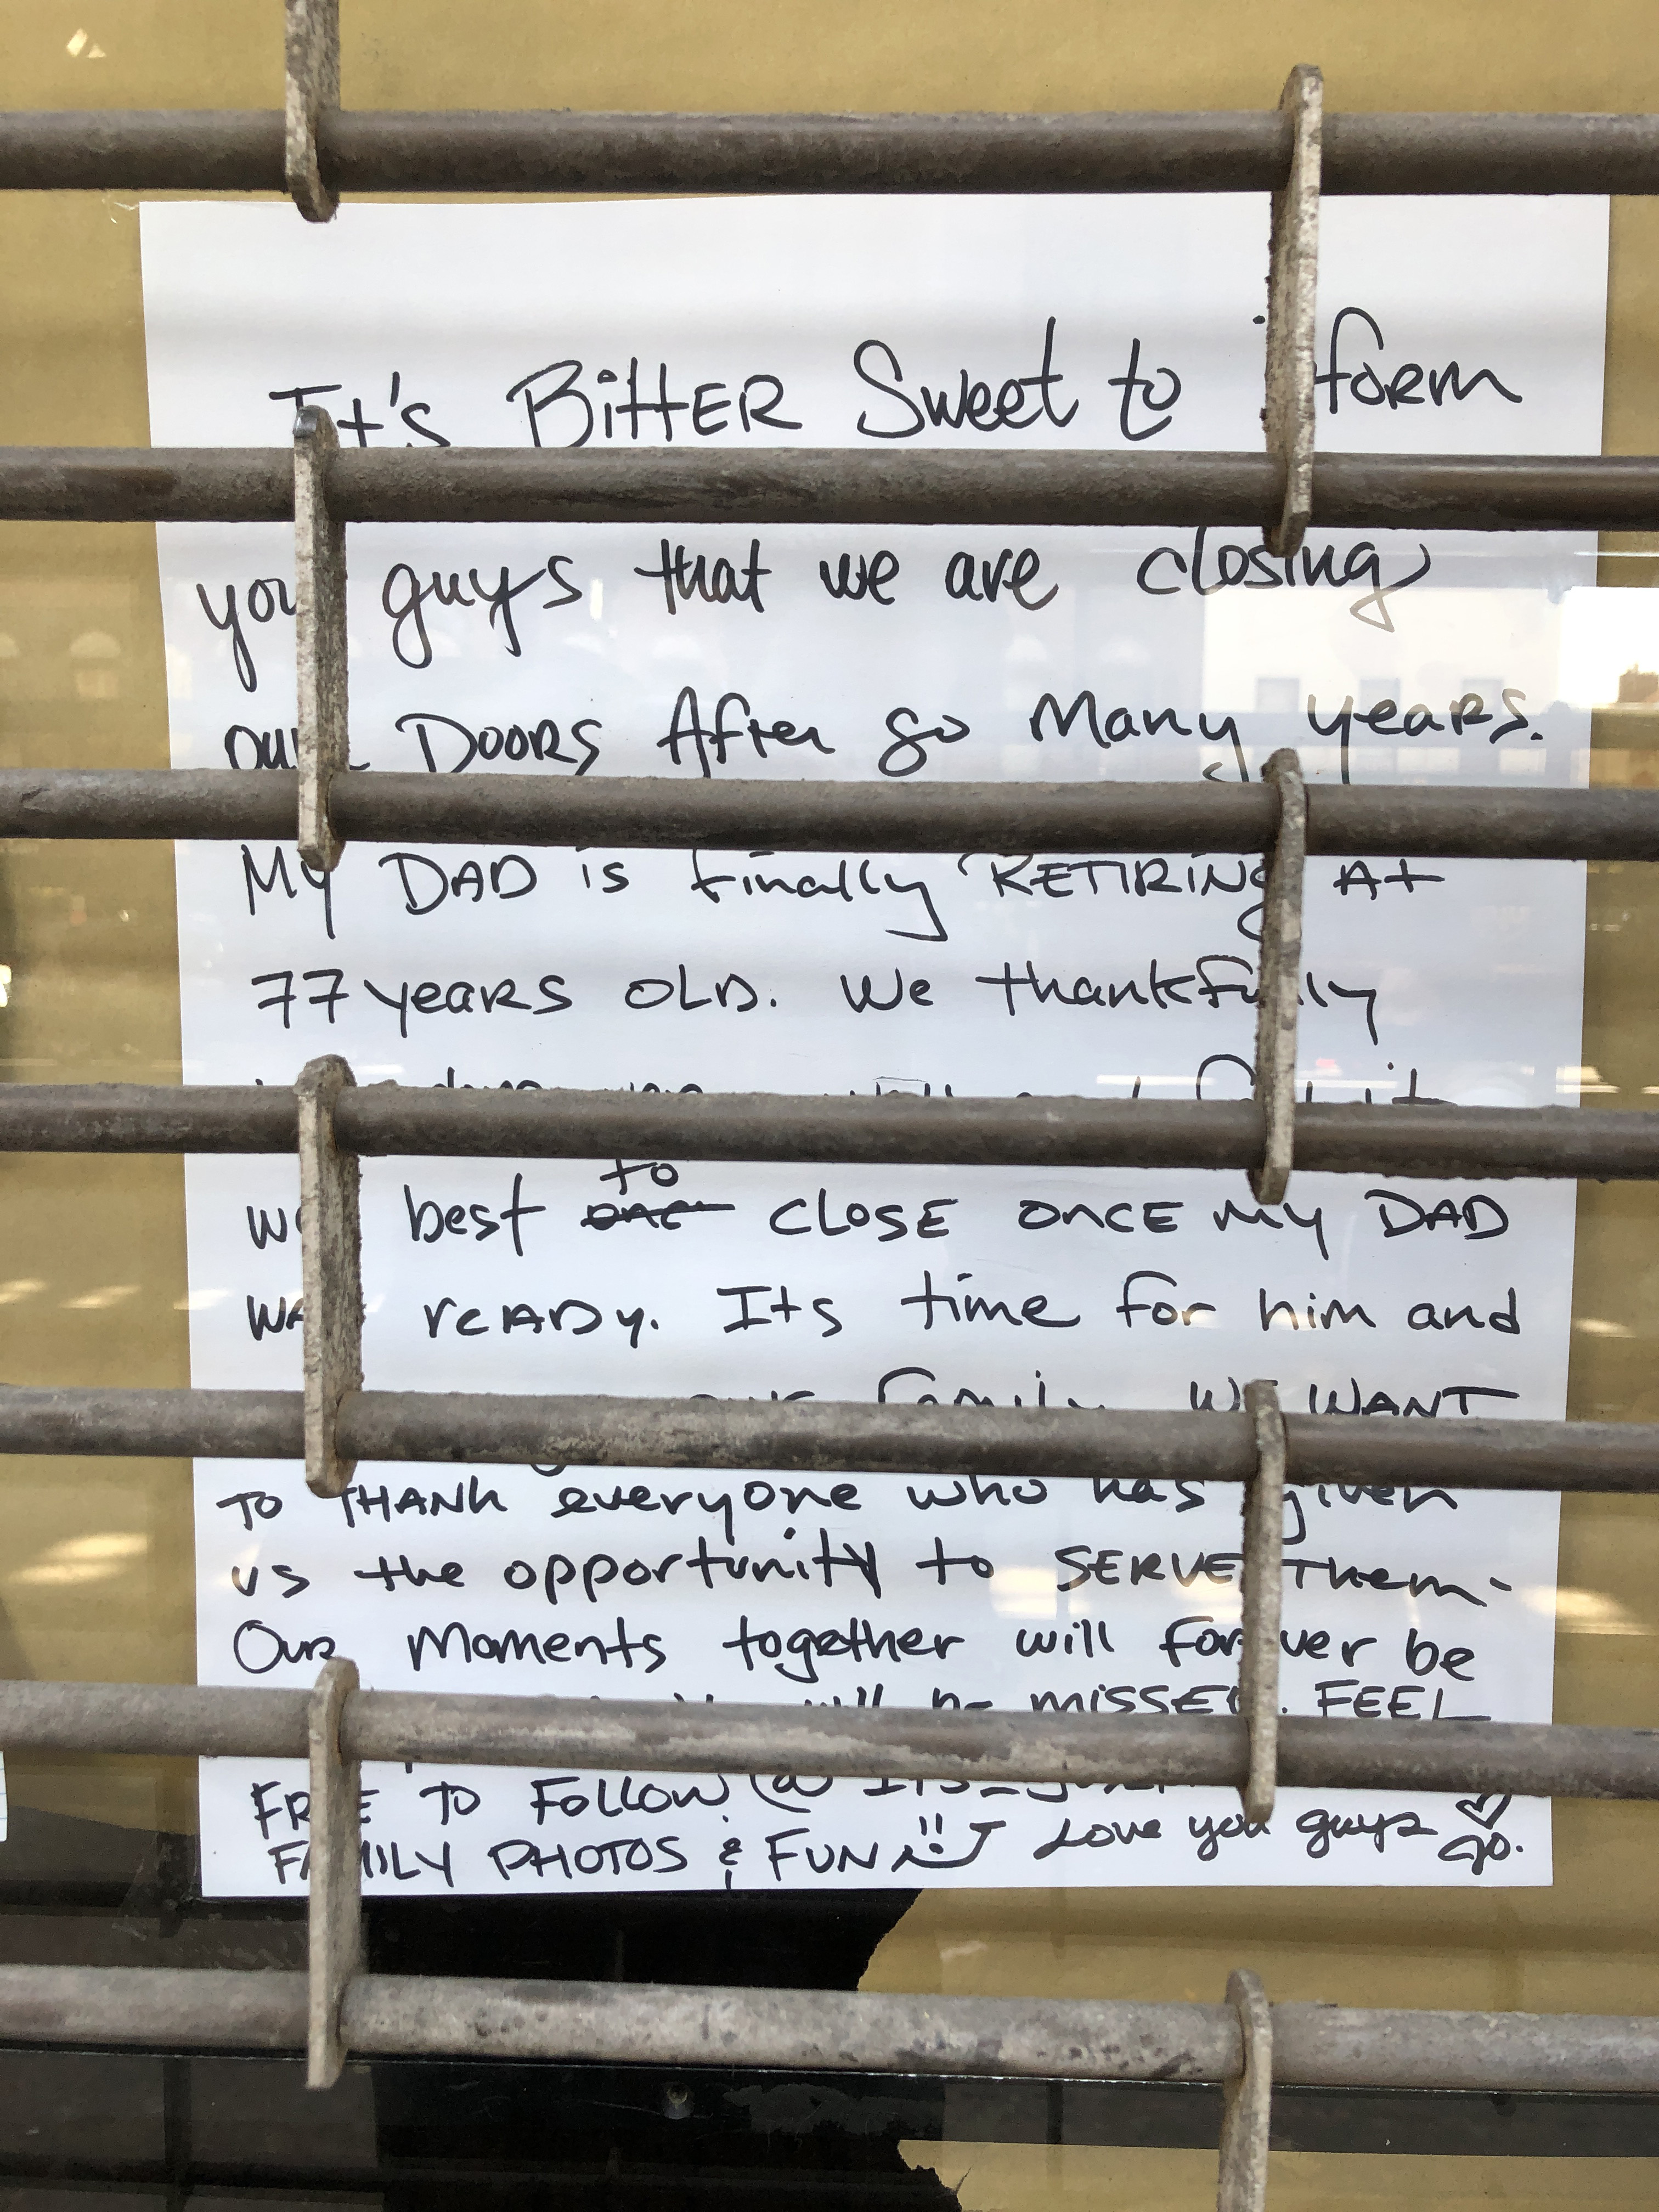 It's BittER Sweet to inform
you guys that we are closing
OUR DOORS After so Many years.
My DAD is finally RETIRING At
77 years OLD. We thankfully
well and felt it
was best to CLOSE ONCE my DAD
WAS reADy. Its time for him and
our family. We WANT
TO THANK everyone who has given
us the opportunity to SERVE them.
Our Moments together will forever be
will be MISSED. FEEL
FREE TO FOLLOW @
FAMILY PHOTOS & FUN Love you guys
Jo.